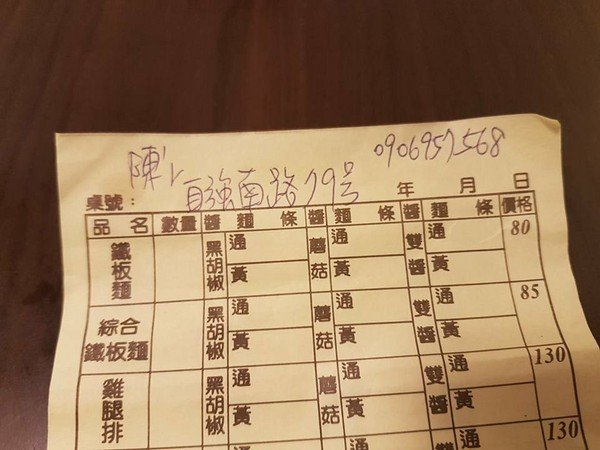 陳's 0906957568
自強南路79号
桌號： 年 月 日
品名 數量 醬 麵條 醬 麵條 醬 麵條 價格
鐵板麵 黑胡椒 通 黃 蘑菇 通 黃 雙醬 通 黃 80
綜合鐵板麵 黑胡椒 通 黃 蘑菇 通 黃 雙醬 通 黃 85
雞腿排 黑胡椒 通 黃 蘑菇 通 黃 雙醬 通 黃 130
通 130